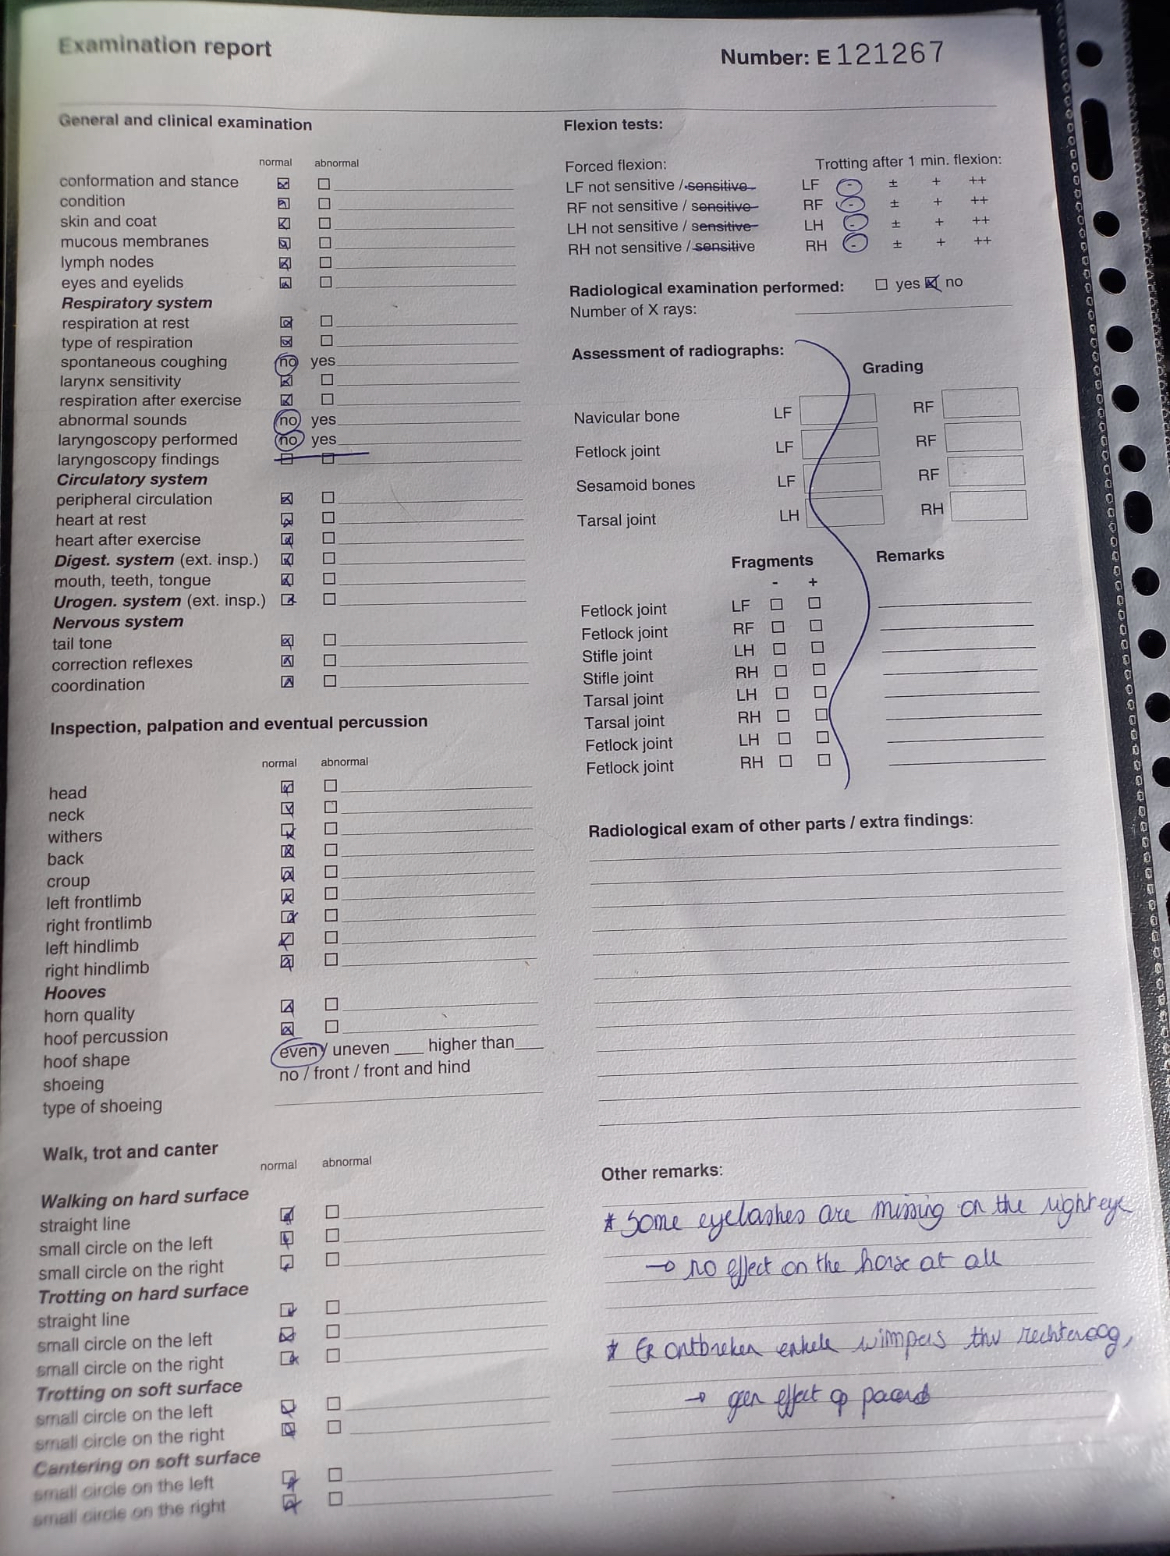 Examination report
Number: E 121267
General and clinical examination
normal abnormal
conformation and stance
condition
skin and coat
mucous membranes
lymph nodes
eyes and eyelids
Respiratory system
respiration at rest
type of respiration
spontaneous coughing no yes
larynx sensitivity
respiration after exercise
abnormal sounds no yes
laryngoscopy performed no yes
laryngoscopy findings
Circulatory system
peripheral circulation
heart at rest
heart after exercise
Digest. system (ext. insp.)
mouth, teeth, tongue
Urogen. system (ext. insp.)
Nervous system
tail tone
correction reflexes
coordination
Inspection, palpation and eventual percussion
normal abnormal
head
neck
withers
back
croup
left frontlimb
right frontlimb
left hindlimb
right hindlimb
Hooves
horn quality
hoof percussion
hoof shape even / uneven ___ higher than___
shoeing no / front / front and hind
type of shoeing
Walk, trot and canter
normal abnormal
Walking on hard surface
straight line
small circle on the left
small circle on the right
Trotting on hard surface
straight line
small circle on the left
small circle on the right
Trotting on soft surface
small circle on the left
small circle on the right
Cantering on soft surface
small circle on the left
small circle on the right
Flexion tests:
Forced flexion: Trotting after 1 min. flexion:
LF not sensitive / sensitive LF - ± + ++
RF not sensitive / sensitive RF - ± + ++
LH not sensitive / sensitive LH - ± + ++
RH not sensitive / sensitive RH - ± + ++
Radiological examination performed: yes no
Number of X rays:
Assessment of radiographs:
Grading
Navicular bone LF RF
Fetlock joint LF RF
Sesamoid bones LF RF
Tarsal joint LH RH
Fragments Remarks
- +
Fetlock joint LF
Fetlock joint RF
Stifle joint LH
Stifle joint RH
Tarsal joint LH
Tarsal joint RH
Fetlock joint LH
Fetlock joint RH
Radiological exam of other parts / extra findings:
Other remarks:
* Some eyelashes are missing on the right eye
→ no effect on the horse at all
* Er ontbreken enkele wimpers thv rechteroog,
→ geen effect op paard